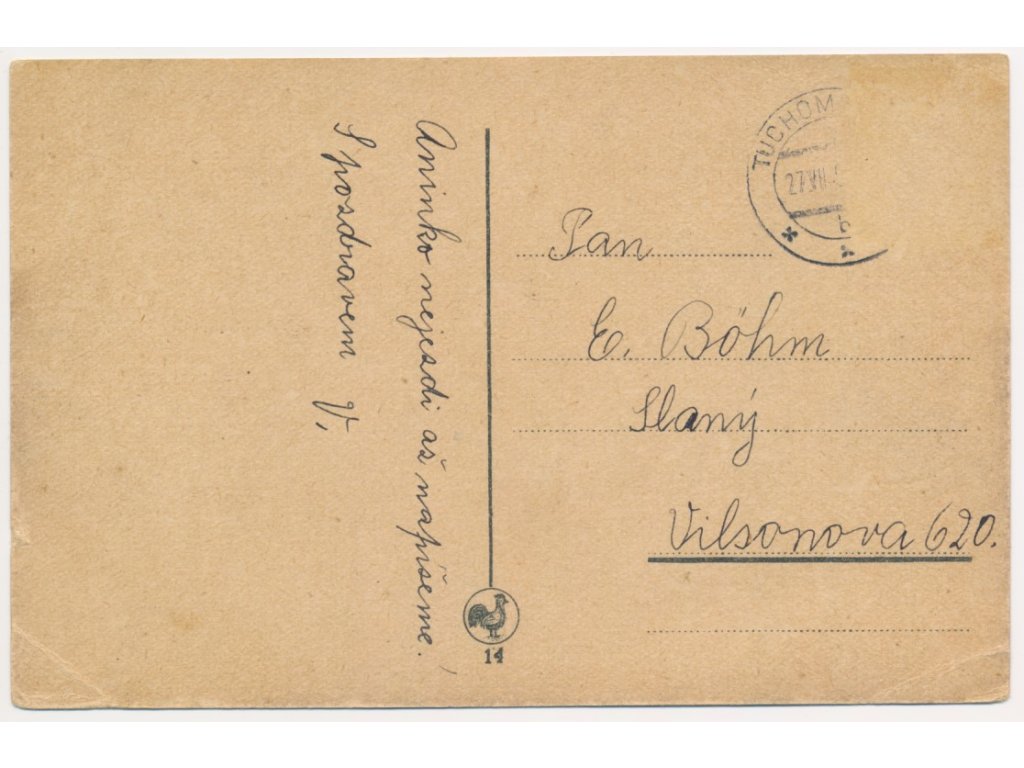 Aninko nejezdi až napíšeme!
S pozdravem V,
TUCHOM
27.VII.
Pan
E. Böhm
Slaný
Vilsonova 620.
14